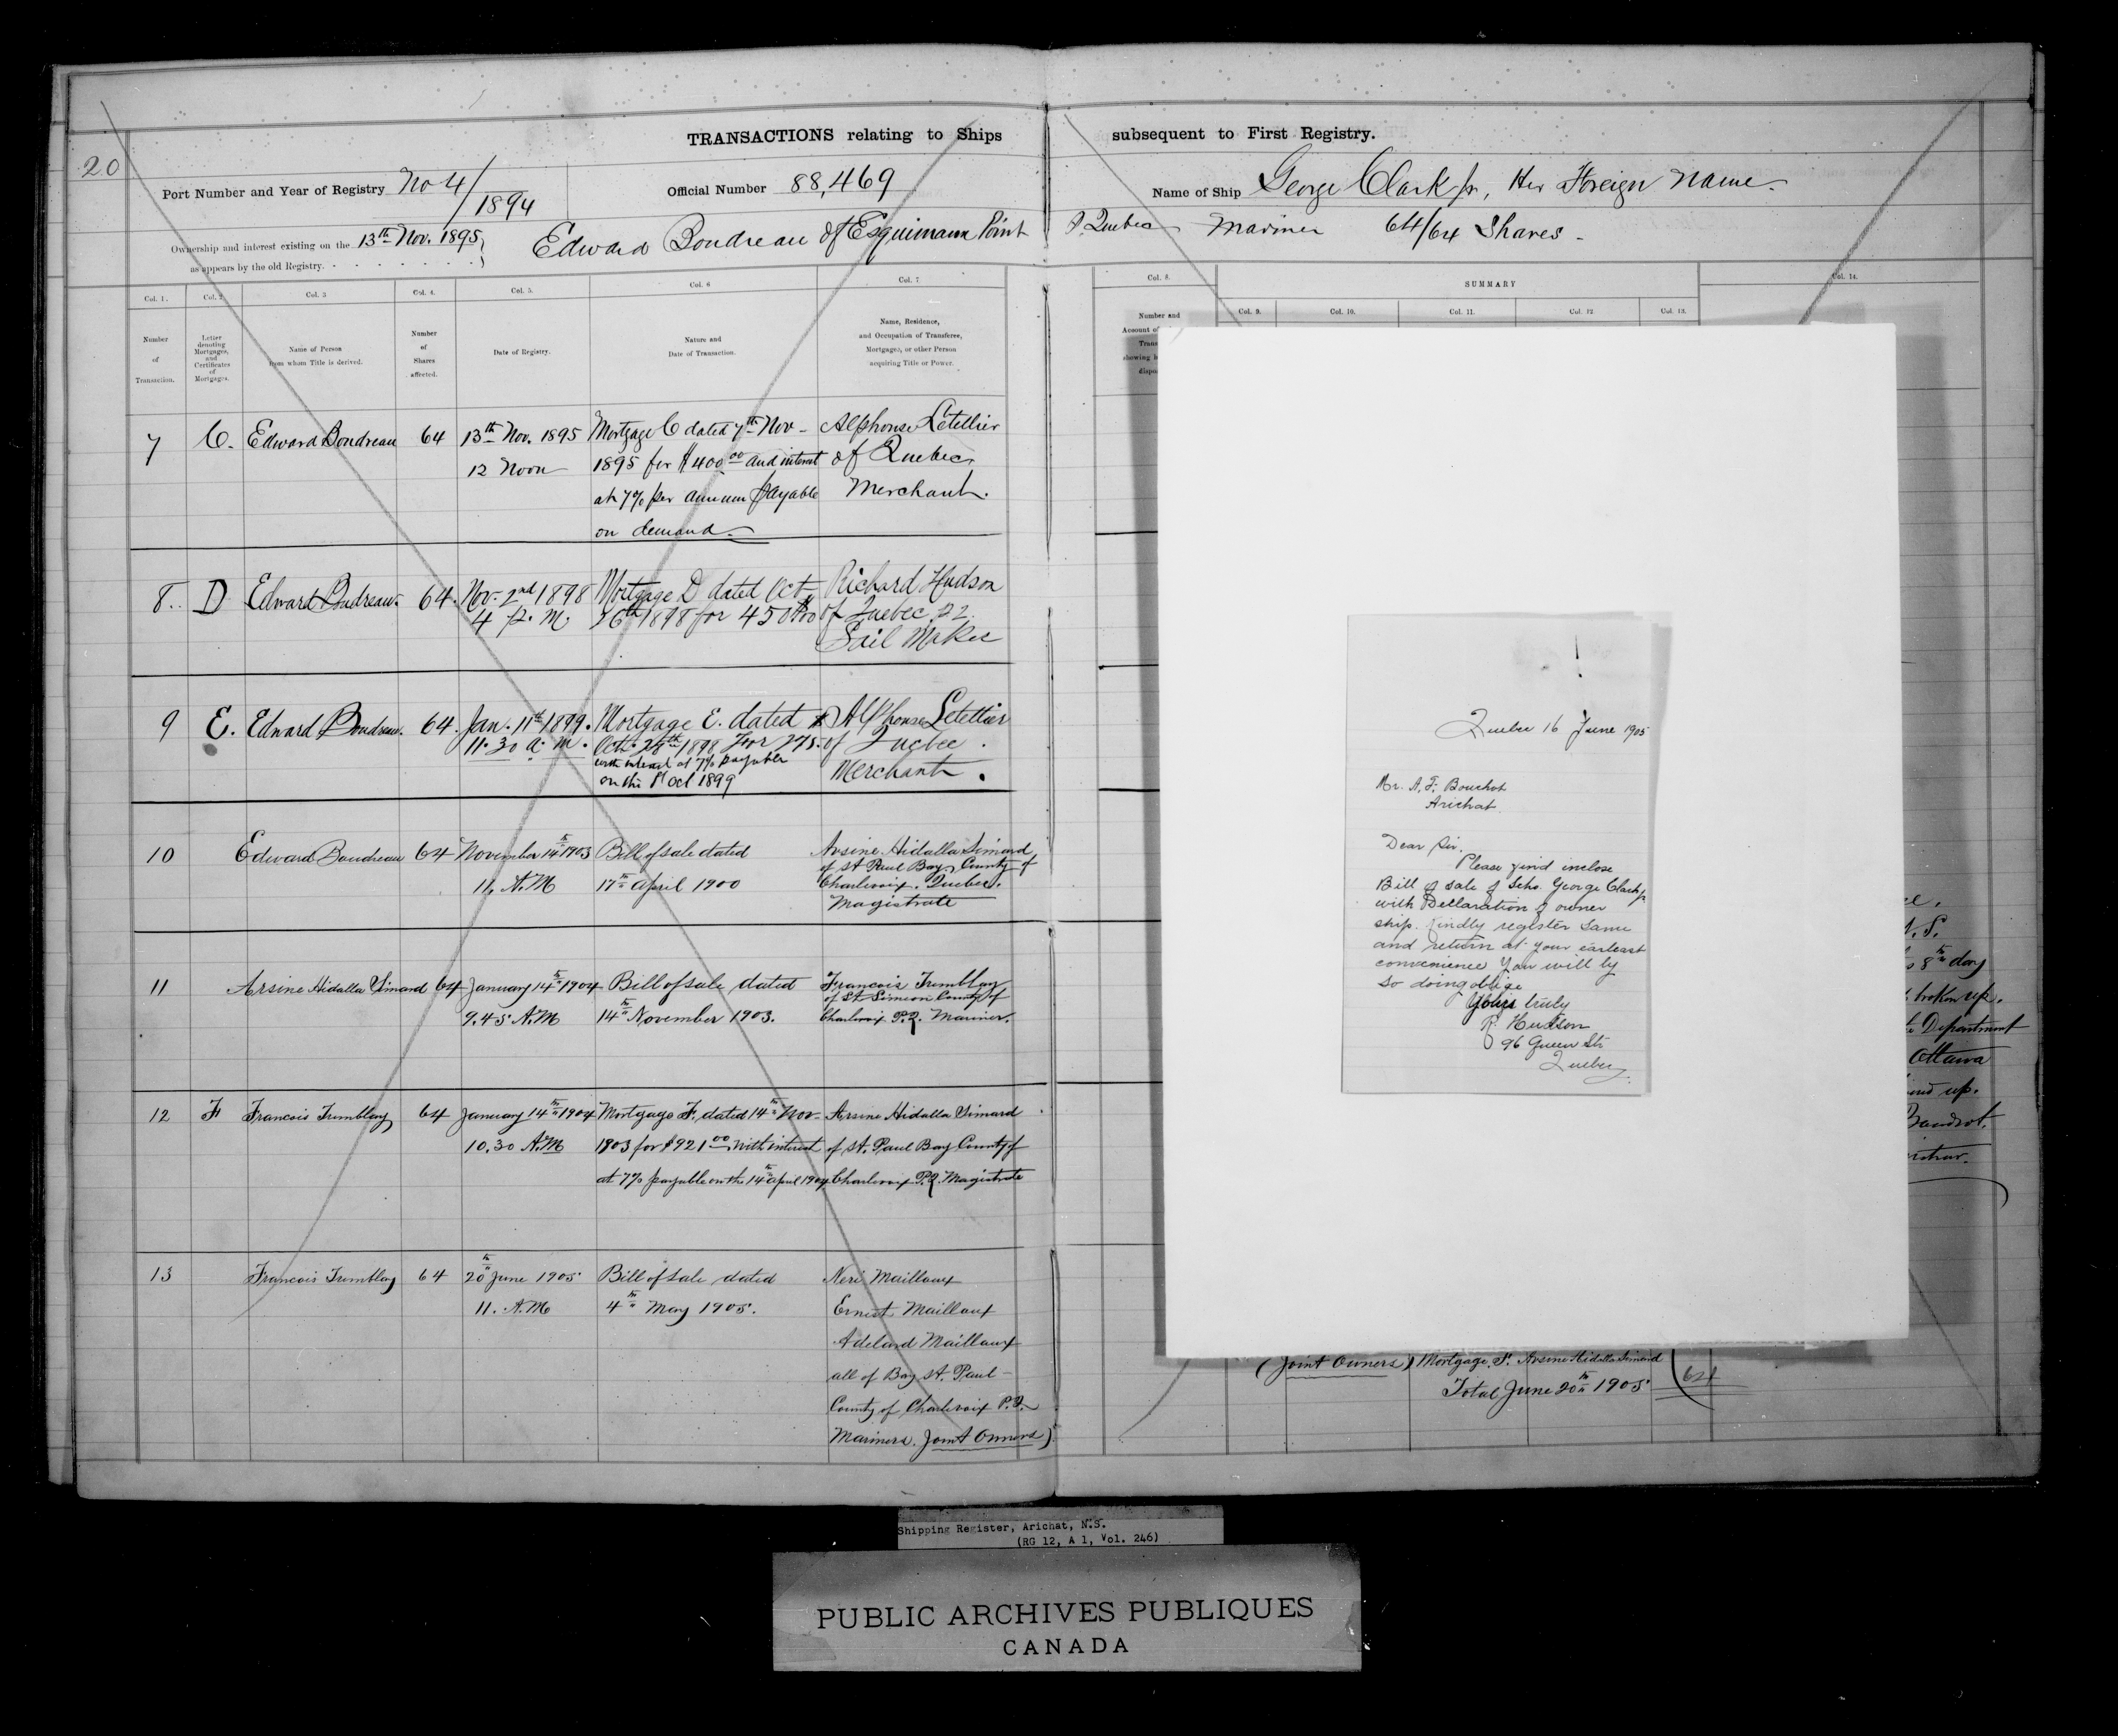 20
TRANSACTIONS relating to Ships subsequent to First Registry.
Port Number and Year of Registry No 4/1894
Official Number 88,469
Name of Ship George Clark jr, Her Foreign Name.
Ownership and interest existing on the 13th Nov. 1895
as appears by the old Registry.
Edward Boudreau of Esquimaux Point P. Quebec Mariner 64/64 Shares -
Col. 1.
Number
of
Transaction.
Col. 2
Letter
denoting
Mortgages,
and
Certificates
of
Mortgages.
Col. 3
Name of Person
from whom Title is derived.
Col. 4.
Number
of
Shares
affected.
Col. 5.
Date of Registry.
Col. 6
Nature and
Date of Transaction.
Col. 7
Name, Residence,
and Occupation of Transferee,
Mortgagee, or other Person
acquiring Title or Power.
Col. 8.
Number and
Account of
showing
SUMMARY
Col. 9.
Col. 10.
Col. 11.
Col. 12
Col. 13.
Col. 14.
7 C. Edward Boudreau 64 13th Nov. 1895 Mortgage C dated 7th Nov - Alphonse Letellier
12 Noon 1895 for $400 00 and interest of Quebec
at 7% per annum payable Merchant.
on demand.
8. D Edward Boudreau. 64. Nov. 2nd 1898 Mortgage D dated Oct Richard Hudson
4 P. M. 26th 1898 for of Quebec P2
Sail Maker
9 E. Edward Boudreau. 64. Jan. 11th 1899. Mortgage E. dated Alphonse Letellier
11.30 a. m. Oct. 28th 1898 For 275. of Quebec.
with interest at 7% payable
on the 1st Oct 1899 Merchant.
10 Edward Boudreau 64 November 14th 1903 Bill of sale dated Arsine Aidalla Simard
of St Paul Bay, County of
11, A.M 17th April 1900 Charlevoix. Quebec.
Magistrate
11 Arsine Aidalla Simard 64 January 14th 1904 Bill of sale dated Francois Tremblay
of St. Simeon County of
9.45 A.M 14th November 1903. Charlevoix P.Q. Mariner.
12 F Francois Tremblay 64 January 14th 1904 Mortgage F. dated 14th Nov- Arsine Aidalla Simard
10.30 A.M 1903 for $921 00 with interest of St. Paul Bay County of
at 7% payable on the 14th April 1904 Charlevoix P.Q. Magistrate
13 Francois Tremblay 64 20th June 1905 Bill of sale dated Neri Maillaux
11. A.M 4th May 1905. Ernest Maillaux
Adelard Maillaux
all of Bay St. Paul -
County of Charlevoix P.Q.
Mariners. Joint Owners)
Quebec 16 June 1905
Mr. A. F. Bouchot
Arichat
Dear Sir.
Please find inclose
Bill of Sale of Scho. George Clark jr
with Declaration of owner
ship. kindly register same
and return at your earleast
convenience You will by
so doing oblige
Yours truly
R. Hudson
96 Queen St
Quebec
N. S.
8th day
broken up.
Department
Ottawa
up.
(Joint Owners) Mortgage F. Arsine Aidalla Simard
Total June 20th 1905 64
Shipping Register, Arichat, N.S.
(RG 12, A 1, Vol. 246)
PUBLIC ARCHIVES PUBLIQUES
CANADA